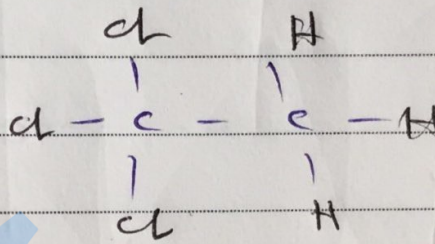 Cl H
Cl - C - C - H
Cl H